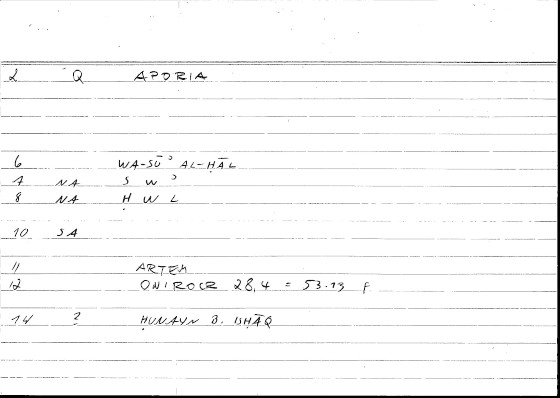 2 Q APORIA
6 WA-SŪʾ AL-ḤĀL
7 NA S W ʾ
8 NA Ḥ W L
10 SA
11 ARTEM
12 ONIROCR 28,4 = 53.13 F
14 ? ḤUNAYN B. ISḤĀQ